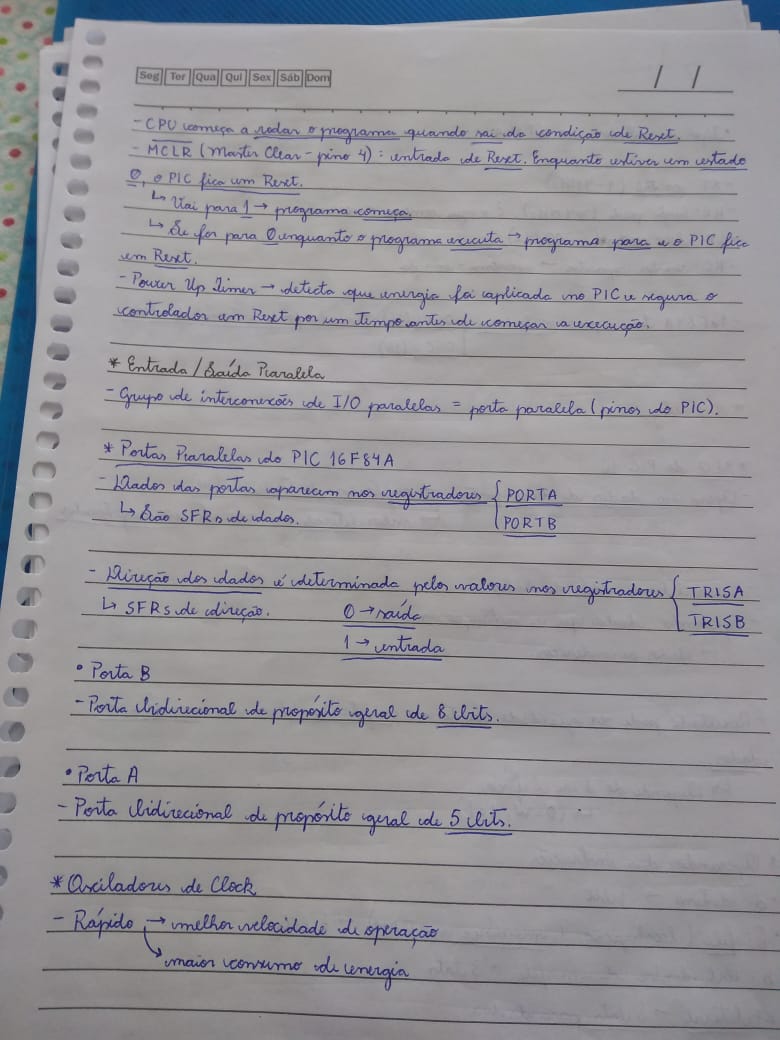 Seg Ter Qua Qui Sex Sáb Dom
/ /
- CPU começa a rodar o programa quando sai da condição de Reset.
- MCLR (Master Clear - pino 4): entrada de Reset. Enquanto estiver em estado
0, o PIC fica em Reset.
↳ Vai para 1 → programa começa.
↳ Se for para 0 enquanto o programa executa → programa para e o PIC fica
em Reset.
- Power Up Timer → detecta que energia foi aplicada no PIC e segura o
controlador em Reset por um tempo antes de começar a execução.
* Entrada / Saída Paralela
- Grupo de interconexões de I/O paralelas = porta paralela (pinos do PIC).
* Portas Paralelas do PIC 16F84A
- Dados das portas aparecem nos registradores { PORTA
↳ São SFRs de dados. PORTB
- Direção dos dados é determinada pelos valores nos registradores { TRISA
↳ SFRs de direção. 0 → saída TRISB
1 → entrada
• Porta B
- Porta bidirecional de propósito geral de 8 bits.
• Porta A
- Porta bidirecional de propósito geral de 5 bits.
* Osciladores de Clock
- Rápido → melhor velocidade de operação
↳ maior consumo de energia